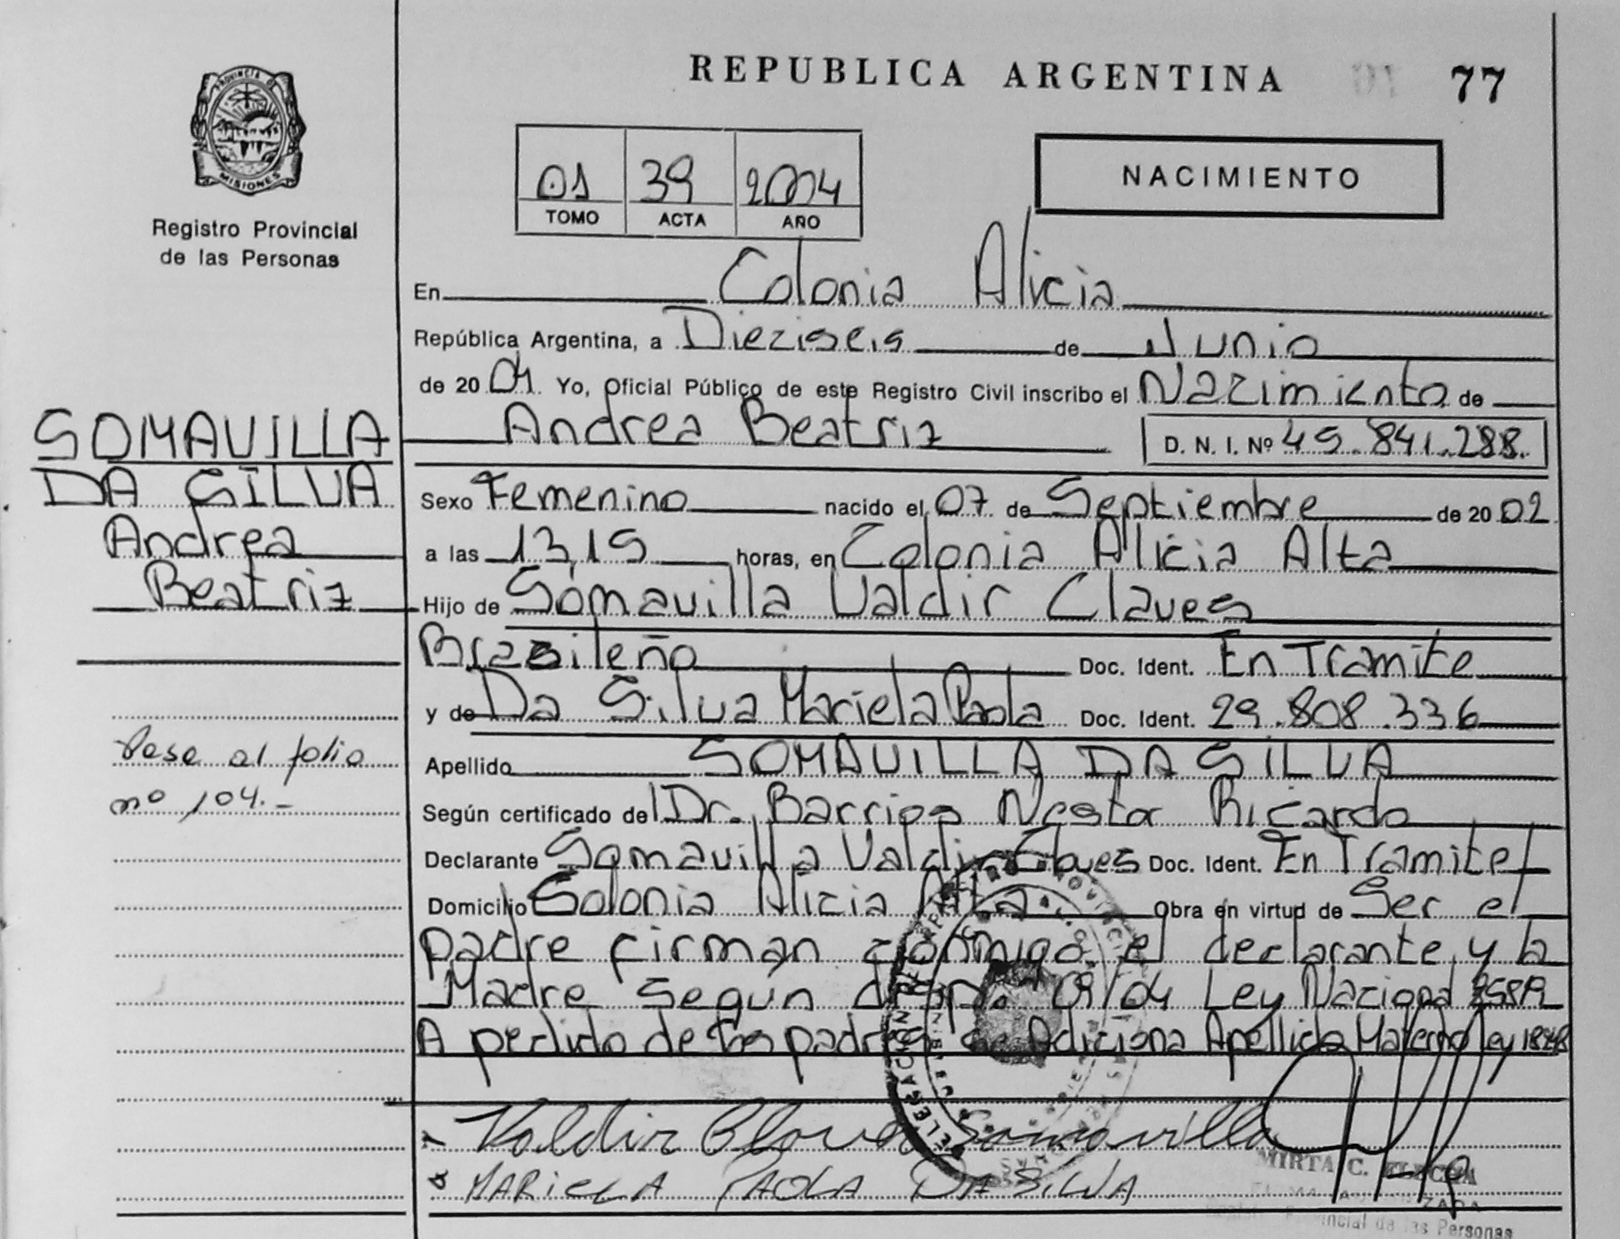 REPUBLICA ARGENTINA 77
PROVINCIA DE
MISIONES
Registro Provincial
de las Personas
01 39 2004
TOMO ACTA AÑO
NACIMIENTO
En Colonia Alicia
República Argentina, a Dieziseis de Junio
de 20 04 Yo, Oficial Público de este Registro Civil inscribo el Nazimiento de
Andrea Beatriz D. N. I. Nº 45.841.288.
SOMAVILLA
DA SILVA
Andrea
Beatriz
Sexo Femenino nacido el 07 de Septiembre de 20 02
a las 13,15 horas, en Colonia Alicia Alta
Hijo de Somavilla Valdir Claves
Brasileño Doc. Ident. En Tramite
y de Da Silva Mariela Paola Doc. Ident. 29.808.336
Apellido SOMAVILLA DA SILVA
Pase al folio
nº 104.-
Según certificado del Dr. Barrios Nestor Ricardo
Declarante Somavilla Valdir Claves Doc. Ident. En Tramite
Domicilio Colonia Alicia Alta Obra en virtud de Ser el
padre firman conmigo el declarante y la
Madre Según 09/04 Ley Nacional
A pedido de los padres se Adiciona Apellido Materno ley
Valdir Somavilla
MARIELA PAOLA DA SILVA
MIRTA C.
Provincial de las Personas